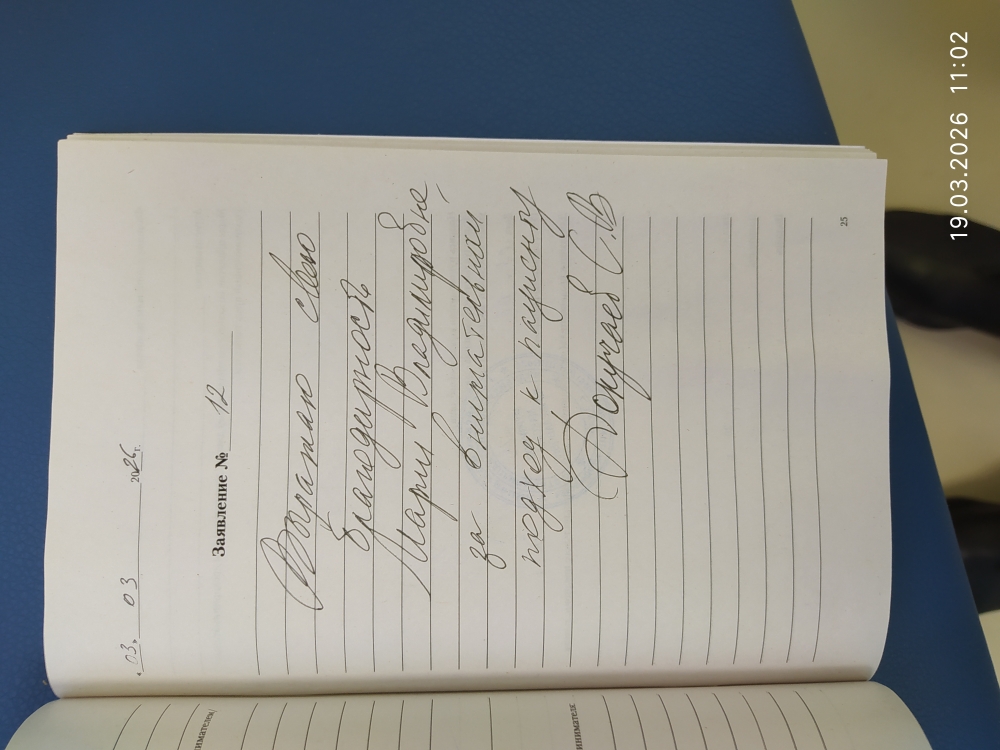 « 03 » 03 2026 г.
Заявление № 12
Выражаю свою
благодарность
Марии Владимировне
за внимательный
подход к пациенту
Докучаев С.В
25
нимателя/
ринимателя
19.03.2026 11:02